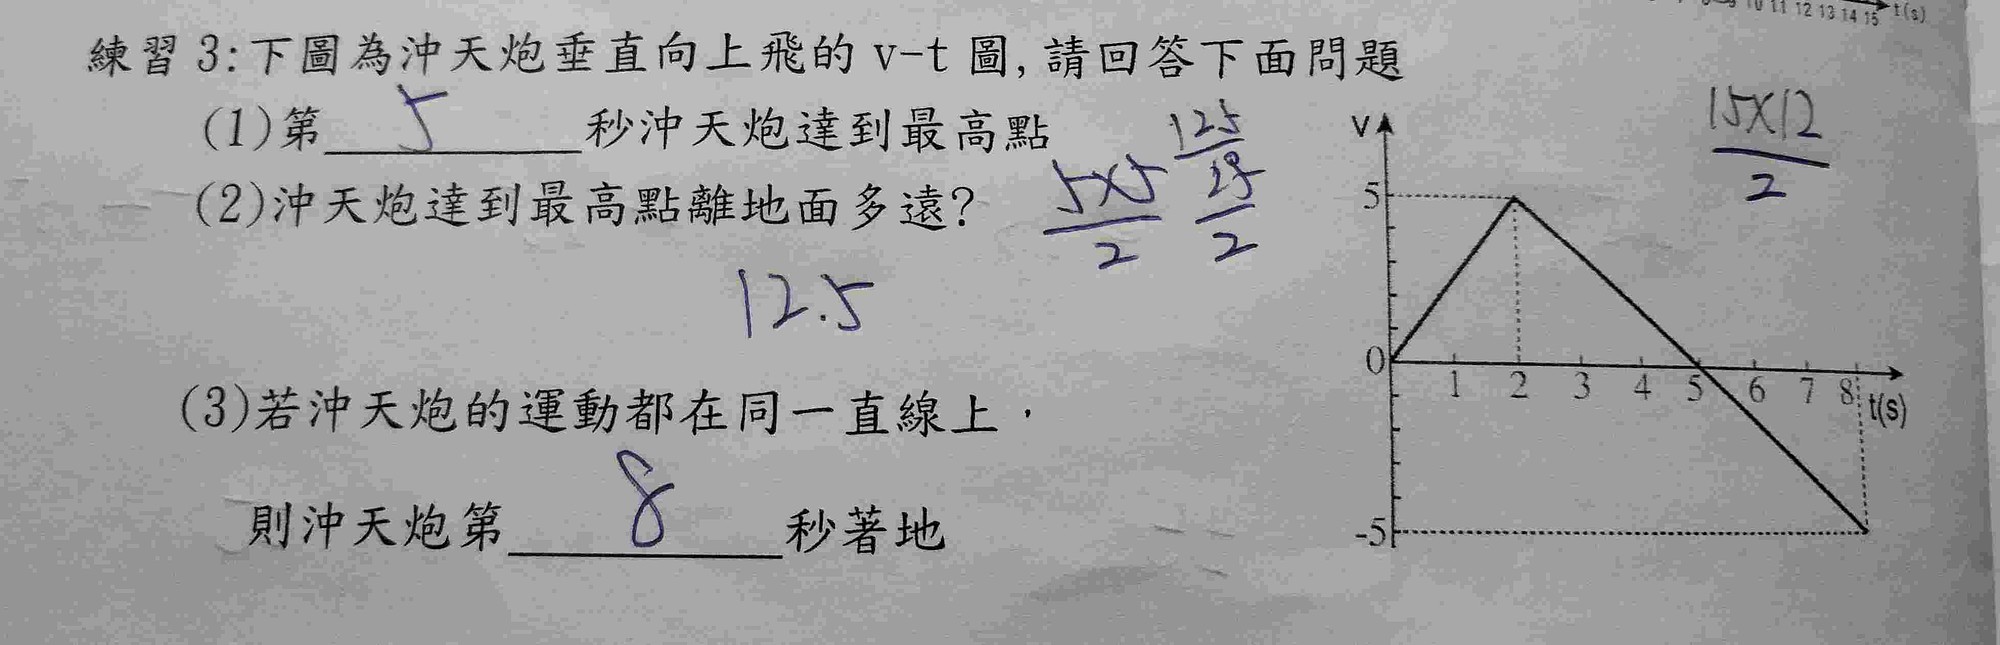 10 11 12 13 14 15 t(s)
練習 3:下圖為沖天炮垂直向上飛的 v-t 圖, 請回答下面問題
(1)第 5 秒沖天炮達到最高點
(2)沖天炮達到最高點離地面多遠?
5×5
2
125
25
2
12.5
(3)若沖天炮的運動都在同一直線上，
則沖天炮第 8 秒著地
15×12
2
v
5
0
1 2 3 4 5 6 7 8 t(s)
-5